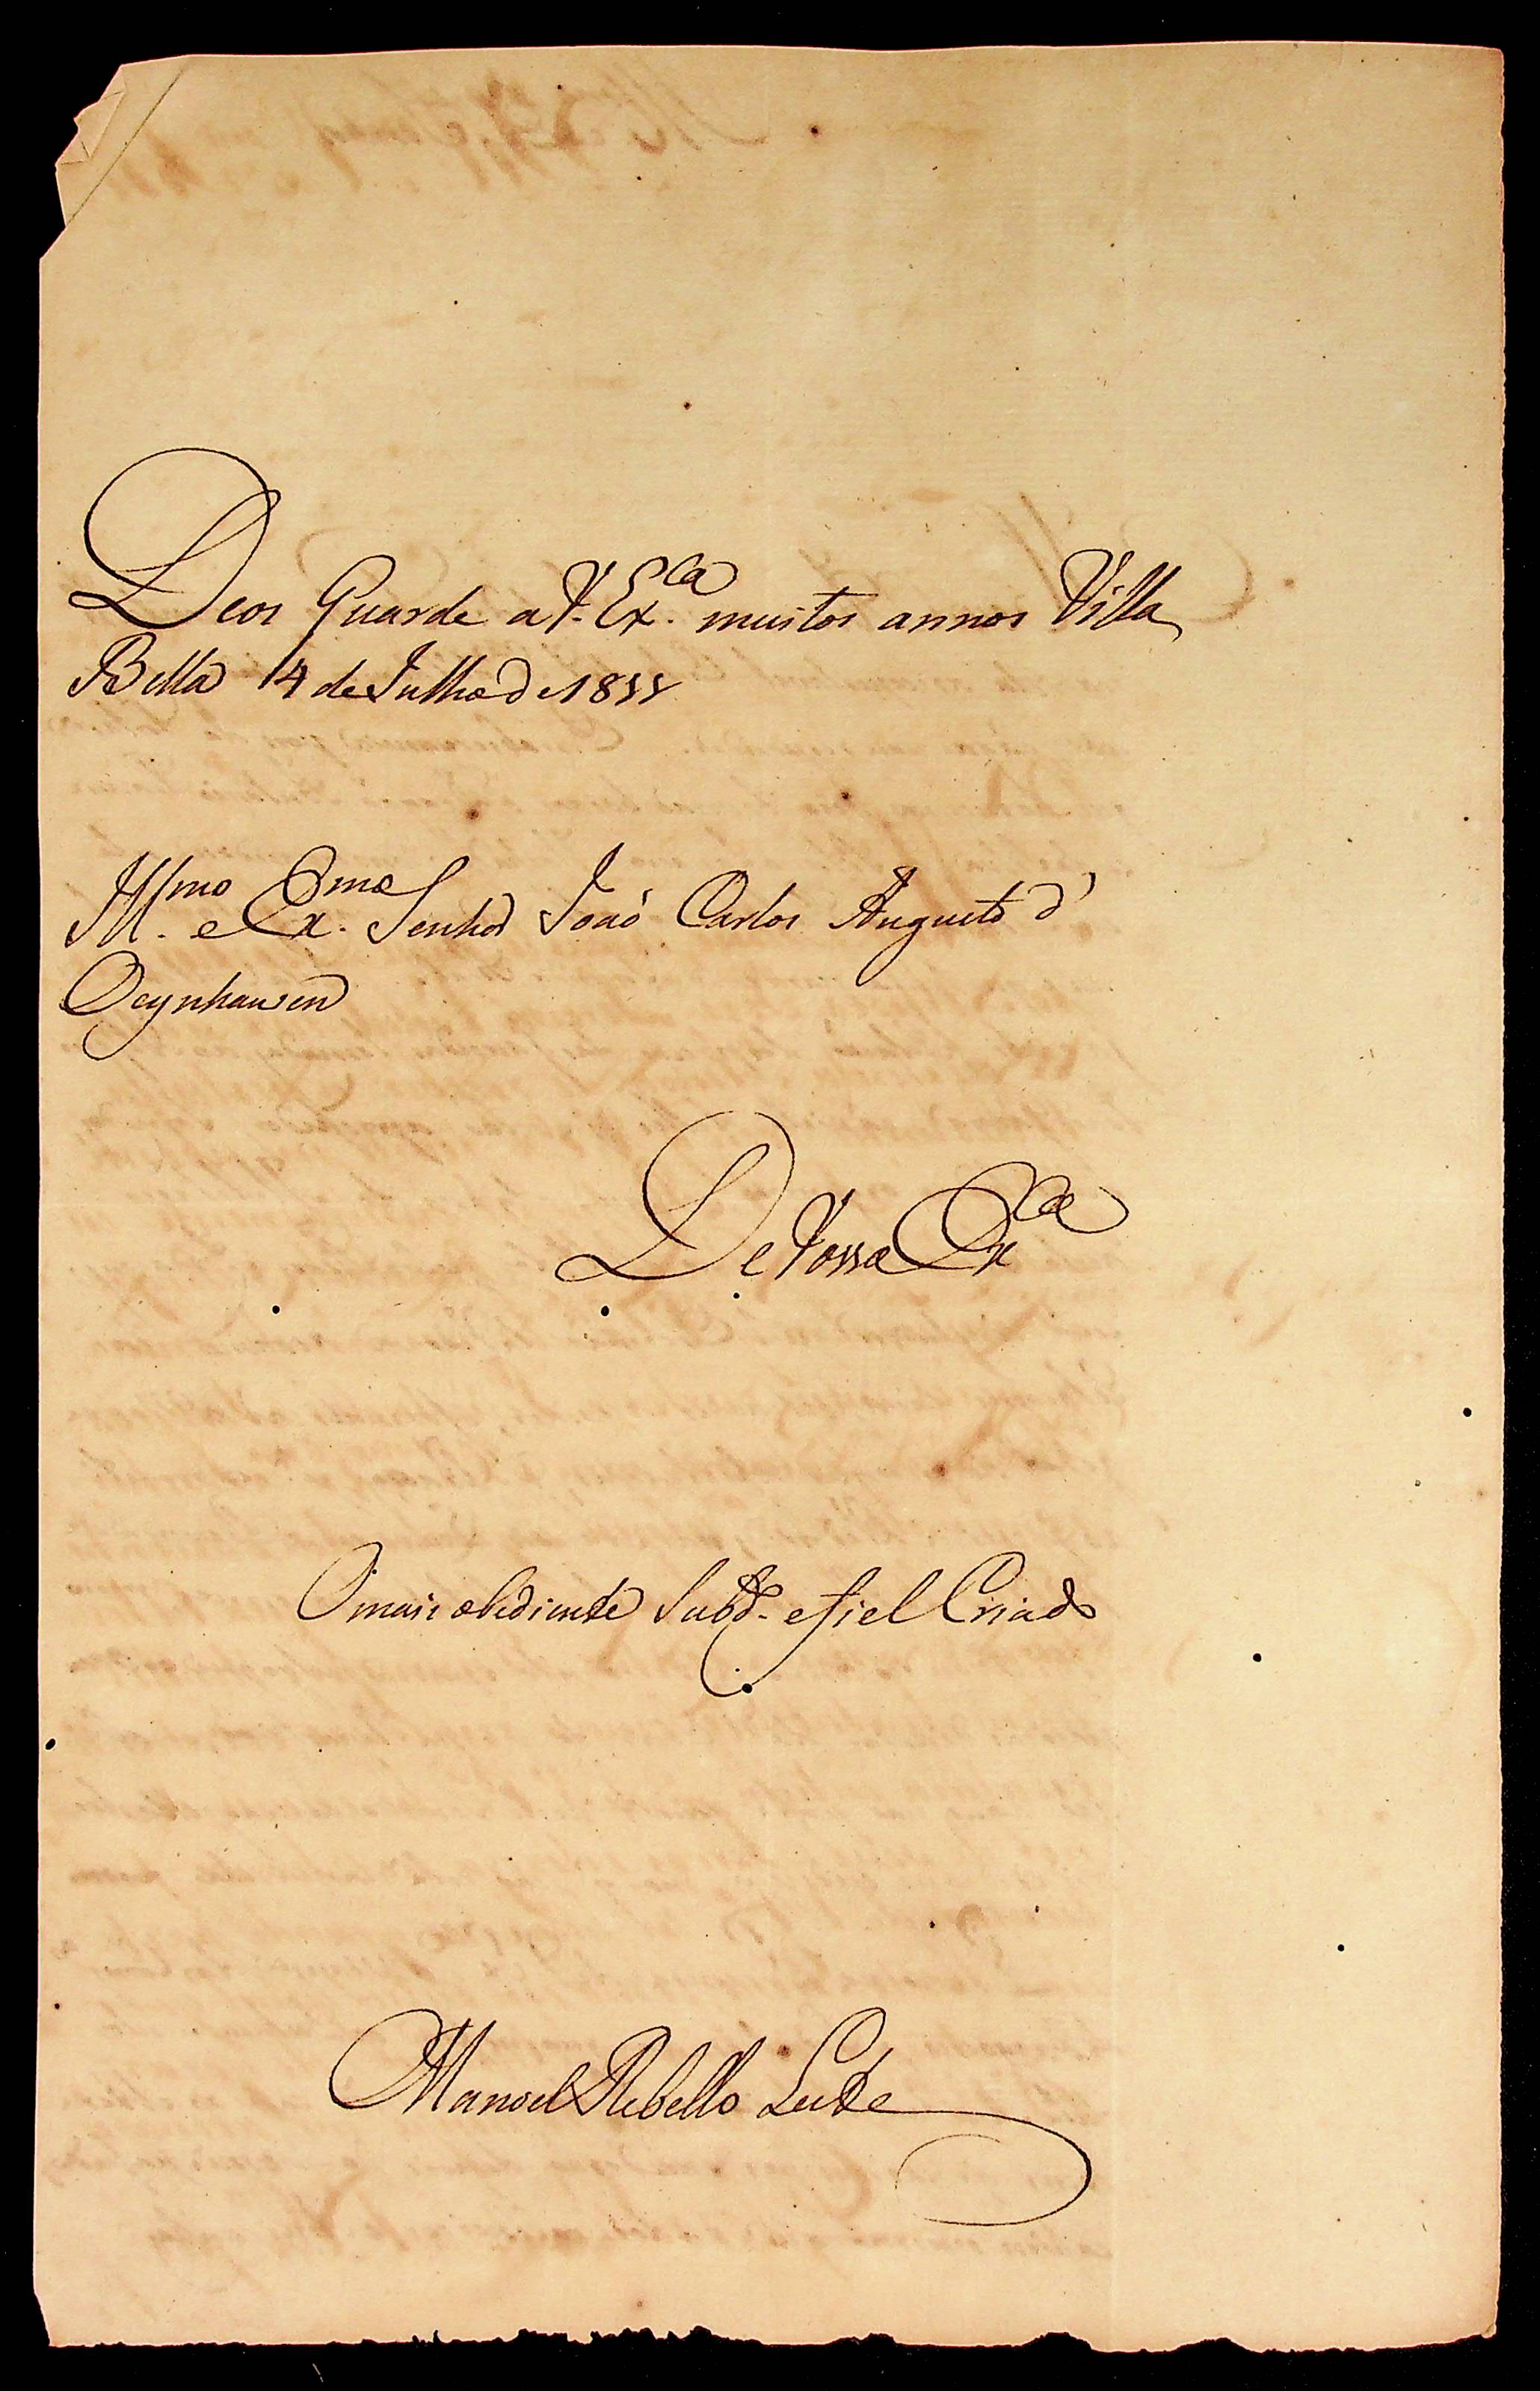 Deos Guarde a V. Ex.ca muitos annos Villa
Bella 14 de Julho de 1811
Ill.mo e Ex.mo Senhor João Carlos Augusto d'
Oeynhausen
De Vossa Ex.ca
O mais obediente Subd.o e fiel Criado
Manoel Rebello Leite